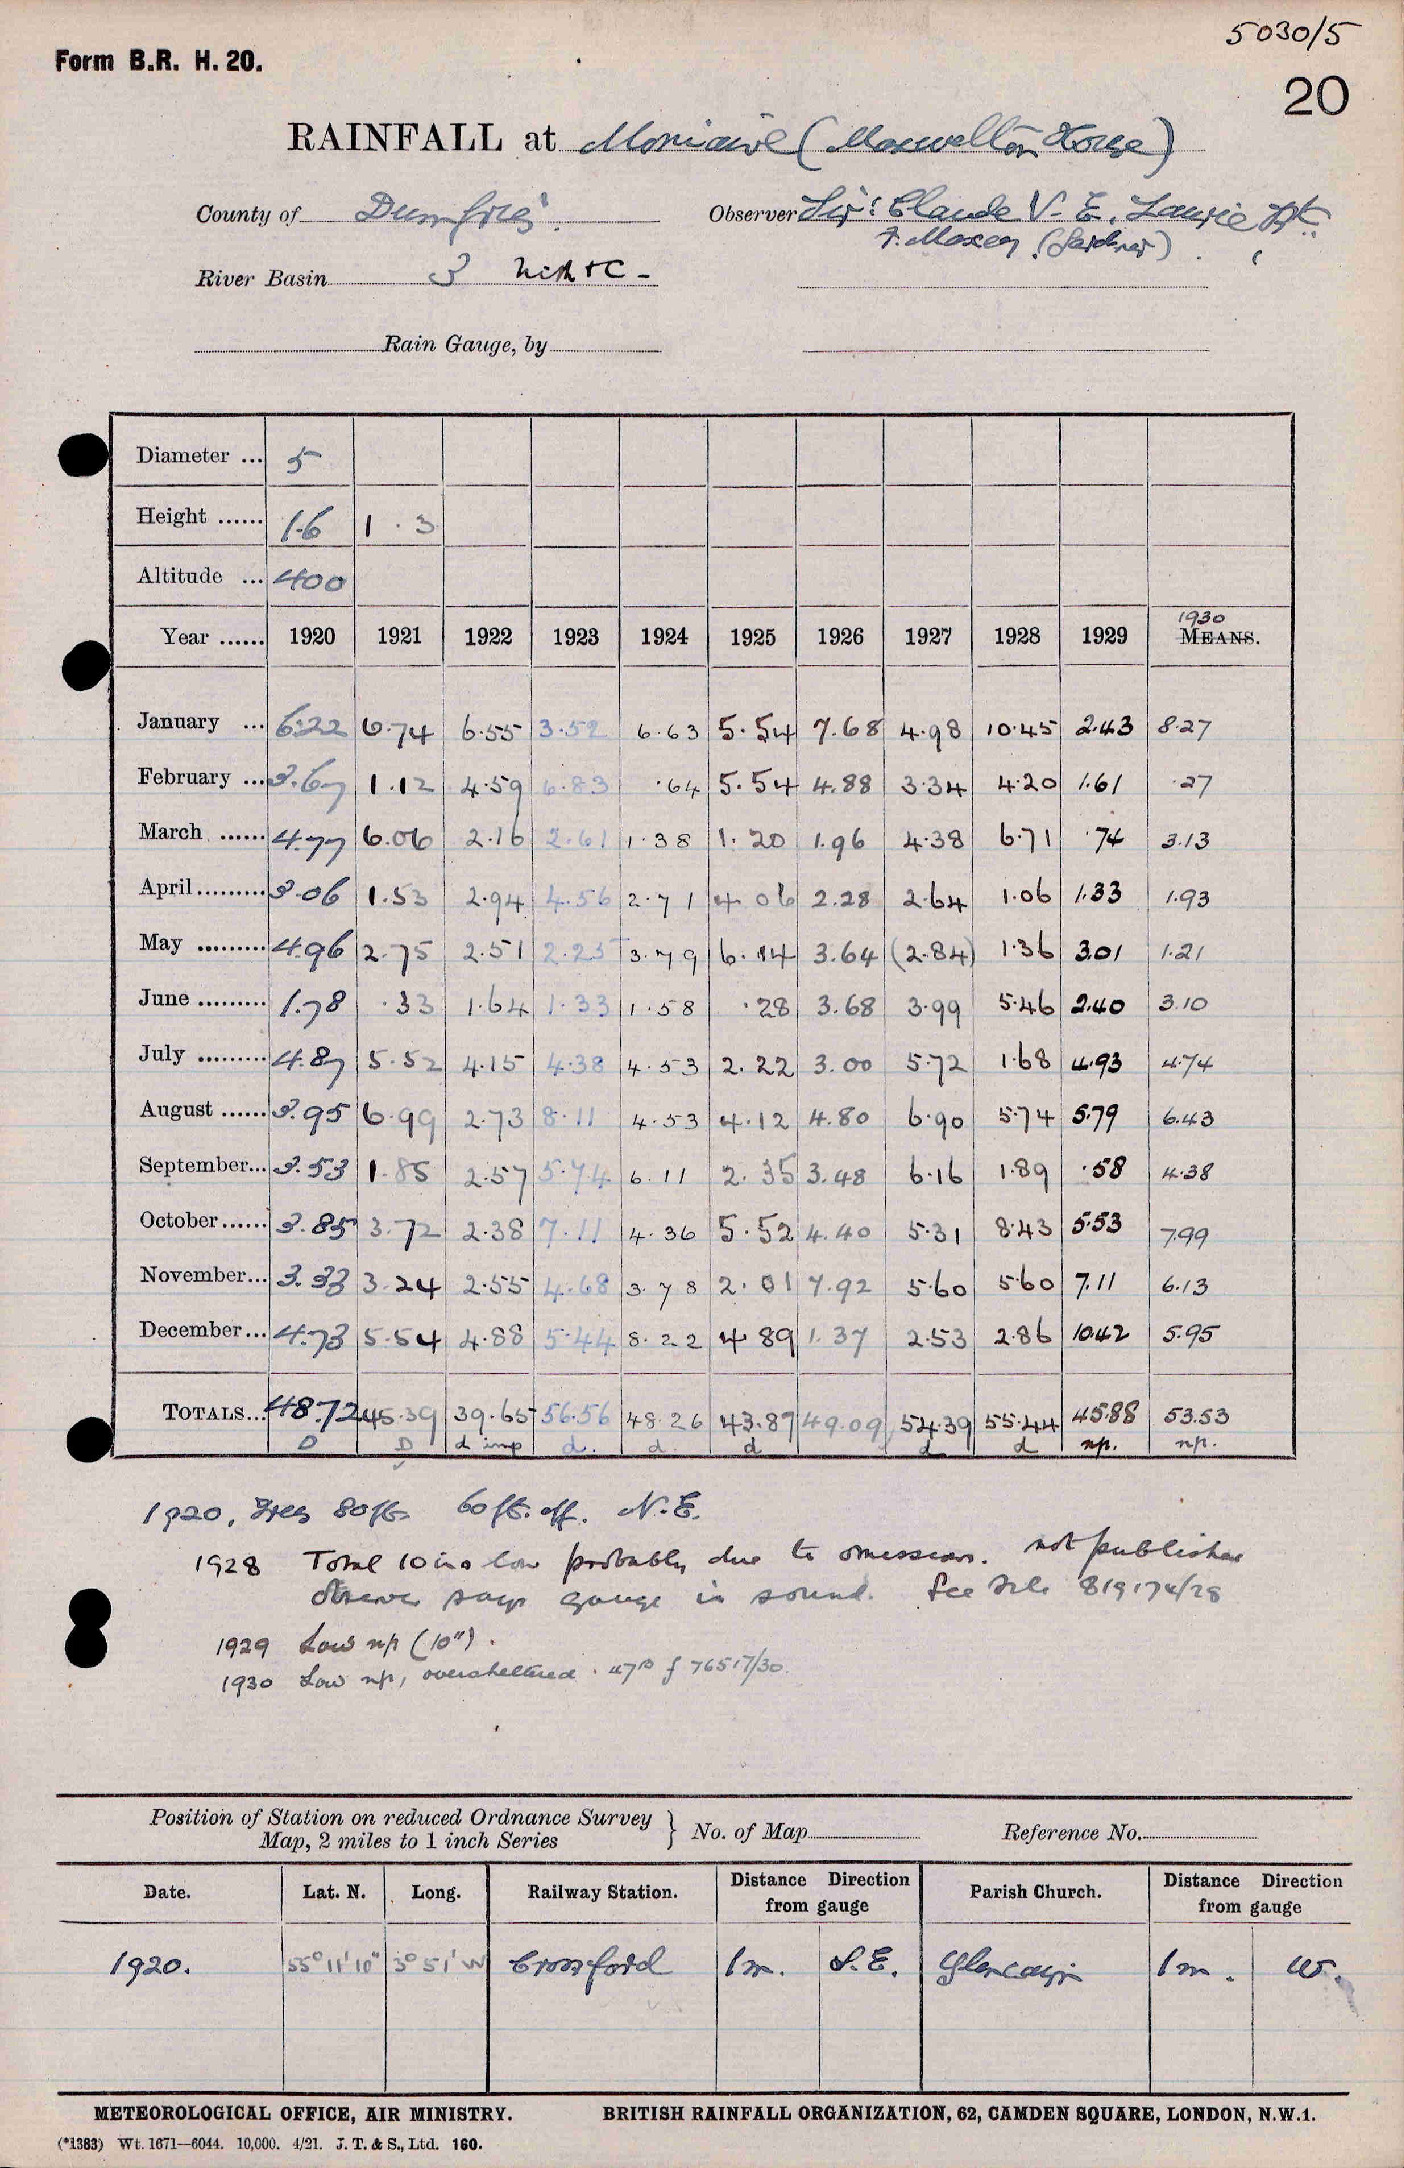 5030/5
Form B.R. H. 20.
20
RAINFALL at Moniaive (Maxwellton House)
County of Dumfries. Observer Sir: Claude V. E. Laurie Bt.
F. Maxey (Gardner)
River Basin 3 Nith &c -
Rain Gauge, by
Diameter ... 5
Height ...... 1.6 1.3
Altitude ... 400
1930
Year ...... 1920 1921 1922 1923 1924 1925 1926 1927 1928 1929 MEANS.
January ... 6.22 6.74 6.55 3.52 6.63 5.54 7.68 4.98 10.45 2.43 8.27
February ... 3.67 1.12 4.59 6.83 .64 5.54 4.88 3.34 4.20 1.61 .27
March ...... 4.77 6.06 2.16 2.61 1.38 1.20 1.96 4.38 6.71 .74 3.13
April ......... 3.06 1.53 2.94 4.56 2.71 4.06 2.28 2.64 1.06 1.33 1.93
May ......... 4.96 2.75 2.51 2.25 3.79 6.14 3.64 (2.84) 1.36 3.01 1.21
June ......... 1.78 .33 1.64 1.33 1.58 .28 3.68 3.99 5.46 2.40 3.10
July ......... 4.87 5.52 4.15 4.38 4.53 2.22 3.00 5.72 1.68 4.93 4.74
August ...... 3.95 6.99 2.73 8.11 4.53 4.12 4.80 6.90 5.74 5.79 6.43
September... 3.53 1.85 2.57 5.74 6.11 2.35 3.48 6.16 1.89 .58 4.38
October...... 3.85 3.72 2.38 7.11 4.36 5.52 4.40 5.31 8.43 5.53 7.99
November... 3.33 3.24 2.55 4.68 3.78 2.01 7.92 5.60 5.60 7.11 6.13
December ... 4.73 5.54 4.88 5.44 8.22 4.89 1.37 2.53 2.86 10.42 5.95
TOTALS... 48.72 45.39 39.65 56.56 48.26 43.87 49.09 54.39 55.44 45.88 53.53
D D d imp d. d. d d d np. np.
1920, Trees 80 ft. 60 ft. off. N.E.
1928 Total 10 ins low probably due to omission. not published
Observer says gauge is sound. See File 819174/28
1929 Low np (10").
1930 Low np, oversheltered. 76517/30
Position of Station on reduced Ordnance Survey Map, 2 miles to 1 inch Series } No. of Map Reference No.
Date. Lat. N. Long. Railway Station. Distance Direction from gauge Parish Church. Distance Direction from gauge
1920. 55° 11' 10" 3° 51' W Crossford 1 m. S.E. Glencairn 1 m. W.
METEOROLOGICAL OFFICE, AIR MINISTRY. BRITISH RAINFALL ORGANIZATION, 62, CAMDEN SQUARE, LONDON, N.W.1.
(*1383) Wt. 1671—6044. 10,000. 4/21. J. T. & S., Ltd. 160.